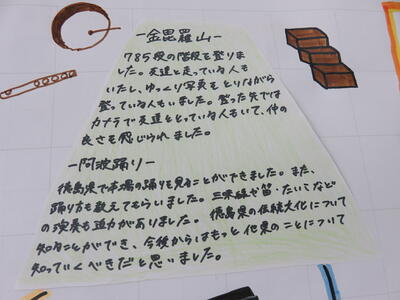 ー金毘羅山ー
785段の階段を登りま
した。友達と走っている人も
いたし、ゆっくり写真をとりながら
登っている人もいました。登った先では
カメラで友達ととっている人もいて、仲の
良さを感じられました。
ー阿波踊りー
徳島県で本場の踊りを見ることができました。また、
踊り方も教えてもらいました。三味線や笛・たいこなど
の演奏も迫力がありました。徳島県の伝統文化について
知ることができ、今後からはもっと他県のことについて
知っていくべきだと思いました。